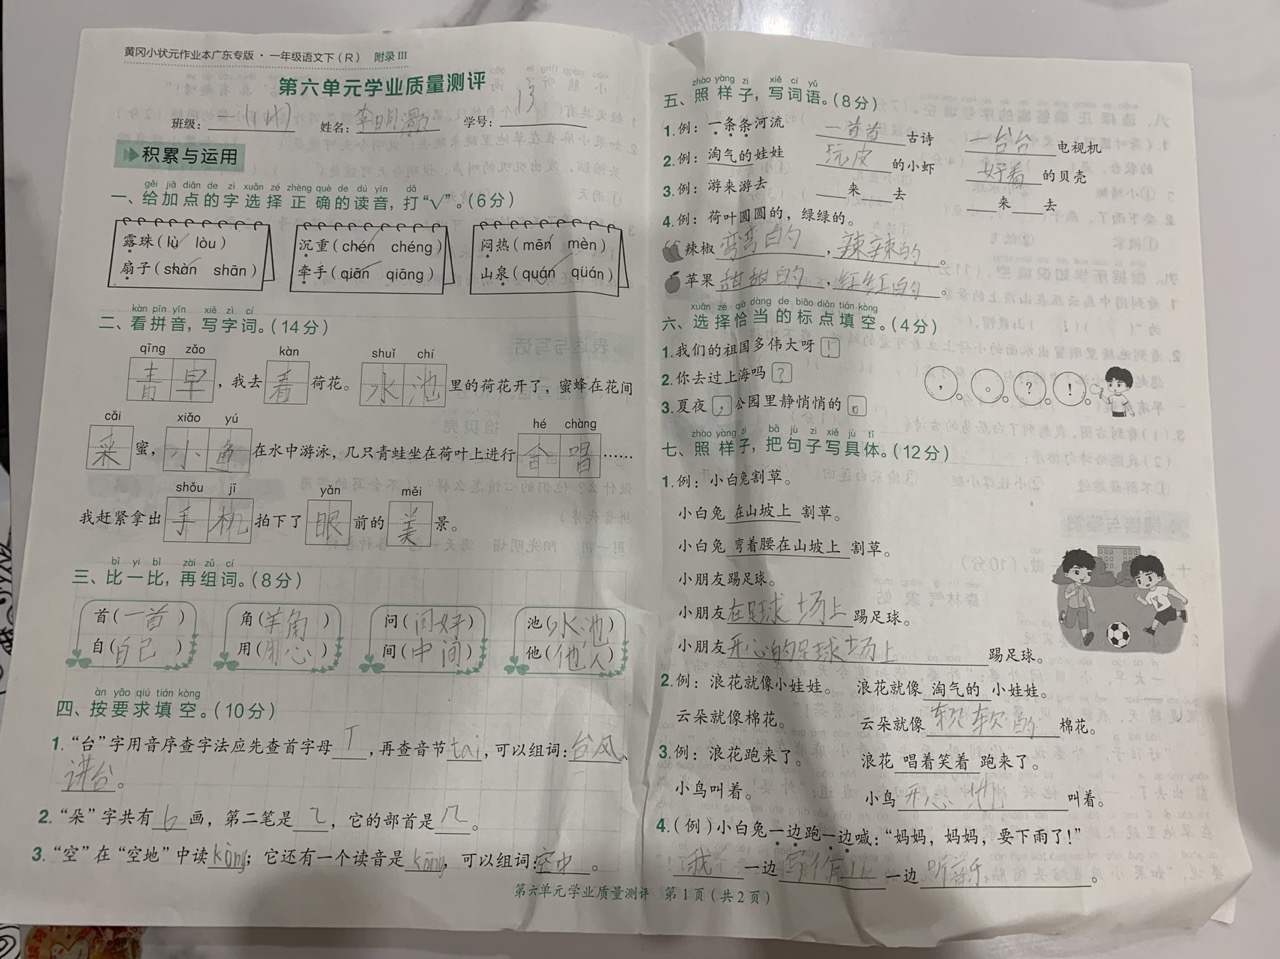 黄冈小状元作业本广东专版·一年级语文下(R) 附录Ⅲ
第六单元学业质量测评
13
班级: 一(1班) 姓名: 李明澈 学号:
积累与运用
gěi jiā diǎn de zì xuǎn zé zhèng què de dú yīn dǎ
一、给加点的字选择正确的读音,打“√”。(6分)
露珠(lù✓ lòu) 沉重(chén✓ chéng) 闷热(mēn✓ mèn)
扇子(shàn✓ shān) 牵手(qiān✓ qiāng) 山泉(quán✓ qüán)
kàn pīn yīn xiě zì cí
二、看拼音,写字词。(14分)
qīng zǎo kàn shuǐ chí
青早,我去看荷花。水池里的荷花开了,蜜蜂在花间
cǎi xiǎo yú hé chàng
采蜜,小鱼在水中游泳,几只青蛙坐在荷叶上进行合唱……
shǒu jī yǎn měi
我赶紧拿出手机拍下了眼前的美景。
bǐ yi bǐ zài zǔ cí
三、比一比,再组词。(8分)
首(一首) 角(羊角) 问(问好) 池(水池)
自(自己) 用(用心) 间(中间) 他(他人)
àn yāo qiú tián kòng
四、按要求填空。(10分)
1. “台”字用音序查字法应先查首字母 T ,再查音节 tai ,可以组词: 台风、
讲台。
2. “朵”字共有 6 画,第二笔是 乙 ,它的部首是 几 。
3. “空”在“空地”中读 kòng ;它还有一个读音是 kōng 可以组词 空中 。
zhào yàng zi xiě cí yǔ
五、照样子,写词语。(8分)
1. 例:一条条河流 一首首 古诗 一台台 电视机
2. 例:淘气的娃娃 玩皮 的小虾 好看 的贝壳
3. 例:游来游去 来 去 来 去
4. 例:荷叶圆圆的,绿绿的。
辣椒 弯弯的 , 辣辣的 。
苹果 甜甜的 , 红红的 。
xuǎn zé qià dàng de biāo diǎn tián kòng
六、选择恰当的标点填空。(4分)
1. 我们的祖国多伟大呀 !
2. 你去过上海吗 ?
3. 夏夜 , 公园里静悄悄的 。
, 。 ? !
zhào yàng zi bǎ jù zi xiě jù tǐ
七、照样子,把句子写具体。(12分)
1. 例:小白兔割草。
小白兔 在山坡上 割草。
小白兔 弯着腰在山坡上 割草。
小朋友踢足球。
小朋友 在足球场上 踢足球。
小朋友 开心的足球场上 踢足球。
2. 例:浪花就像小娃娃。 浪花就像 淘气的 小娃娃。
云朵就像棉花。 云朵就像 软软的 棉花。
3. 例:浪花跑来了。 浪花 唱着笑着 跑来了。
小鸟叫着。 小鸟 开心地 叫着。
4. (例)小白兔一边跑一边喊:“妈妈,妈妈,要下雨了!”
我 一边 写作业 一边 听音乐 。
第六单元学业质量测评 第1页(共2页)